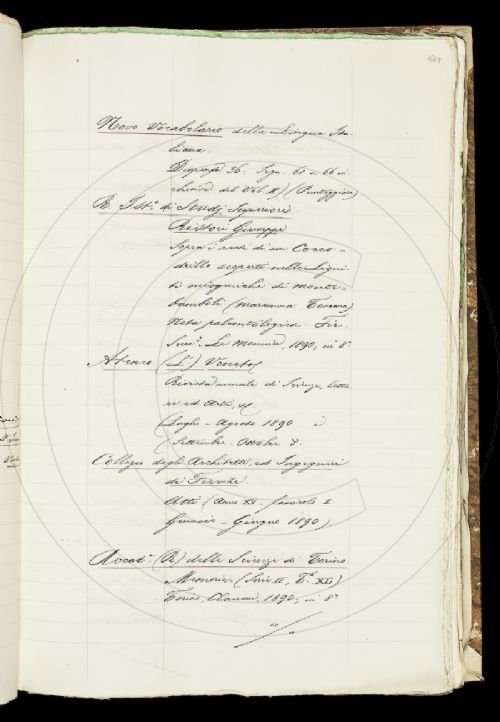 563
Novo Vocabolario della Lingua Ita-
liana.
Dispensa 36. Segn. 61 a 66 in
clusive del Vol. II) (Punteggiare)
R. Ist.º di Studj Superiori.
Ristori Giuseppe
Sopra i resti di un Cocco-
drillo scoperti nelle ligni-
ti mioceniche di Monte-
bamboli (Maremma Toscana)
Nota paleontologica. Fir.
Succ.ri Le Monnier, 1890, in 8º
Ateneo (L') Veneto
Rivista mensile di Scienze, lette
re ed Arti,
(Luglio - Agosto 1890 e
(Settembre - Ottobre d.
Collegio degli Architetti, ed Ingegneri
di Firenze.
Atti (Anno XV - fascicolo I
Gennaio - Giugno 1890)
Accad.ª (R.) delle Scienze di Torino
Memorie (Serie II, T.º XL)
Torino, Clausen, 1890, in 8º